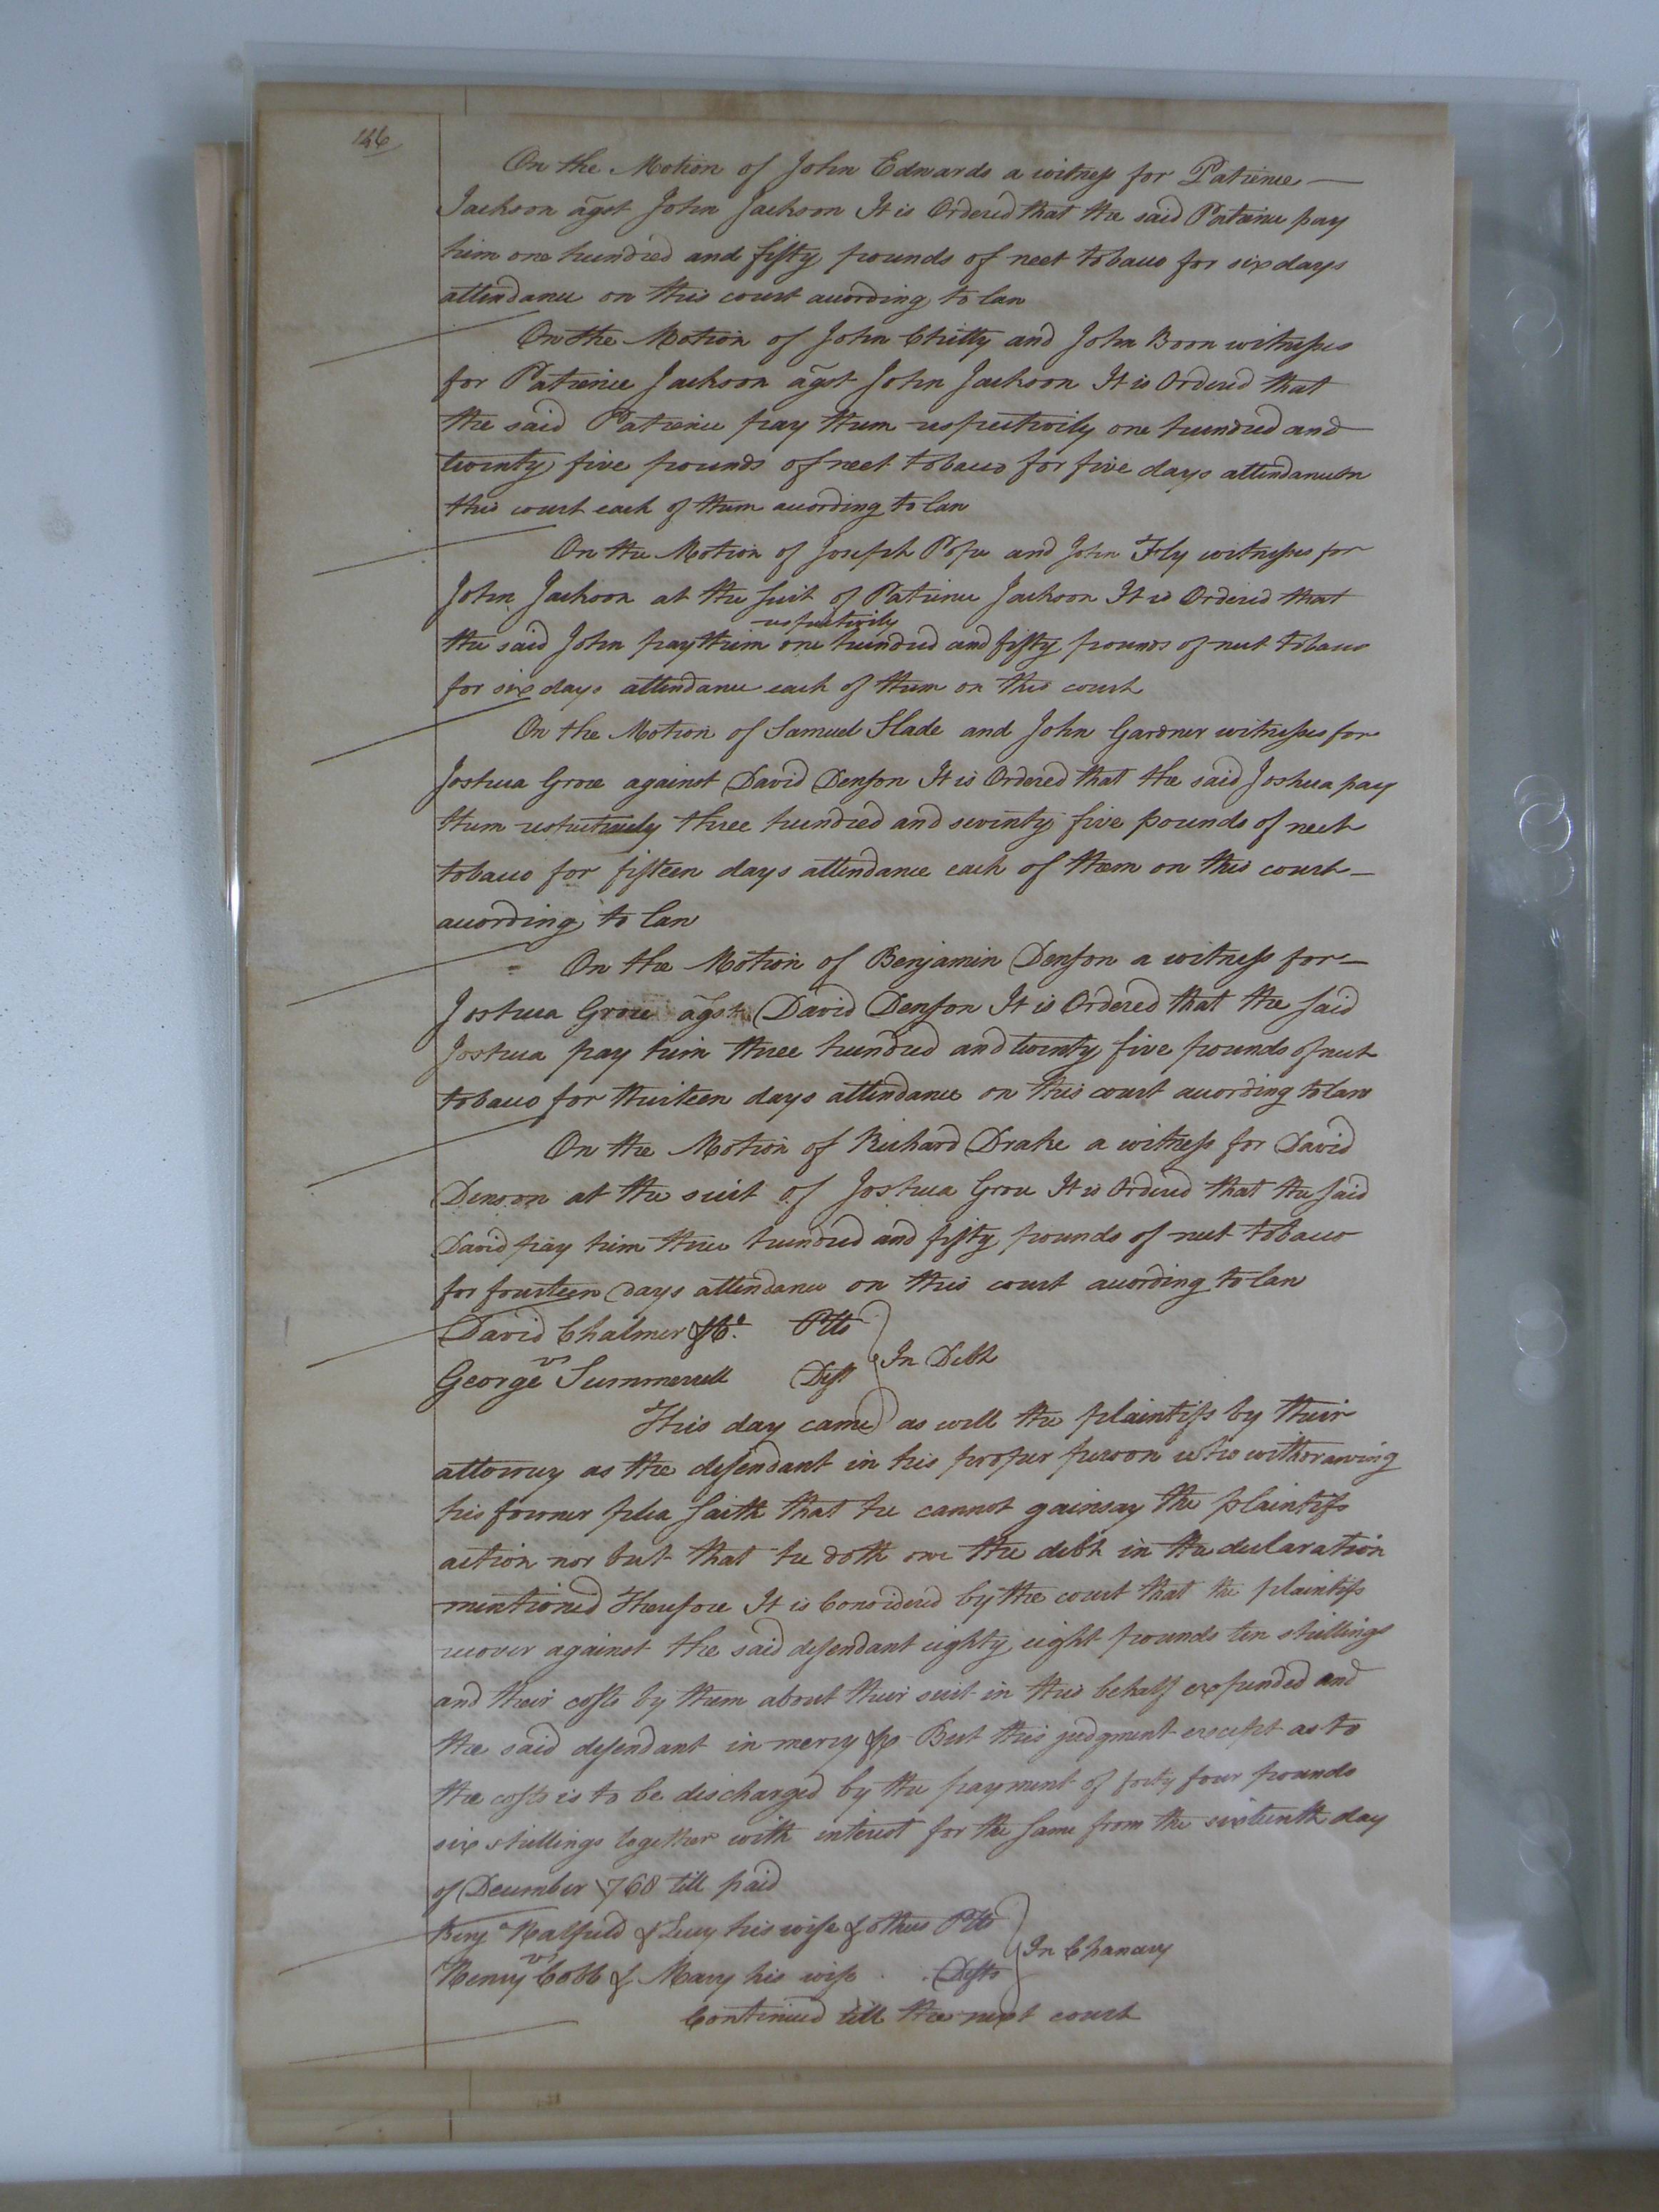 146
On the Motion of John Edwards a witness for Patience
Jackson agst John Jackson It is Ordered that the said Patience pay
him one hundred and fifty pounds of neet tobacco for six days
attendance on this court according to law
On the Motion of John Chitty and John Boon witnesses
for Patience Jackson agst John Jackson It is Ordered that
the said Patience pay them respectively one hundred and
twenty five pounds of neet tobacco for five days attendance on
this court each of them according to law
On the Motion of Joseph Pope and John Fly witnesses for
John Jackson at the suit of Patience Jackson It is Ordered that
respectively
the said John pay them one hundred and fifty pounds of neet tobacco
for six days attendance each of them on this court
On the Motion of Samuel Slade and John Gardner witnesses for
Joshua Grove against David Denson It is Ordered that the said Joshua pay
them respectively three hundred and seventy five pounds of neet
tobacco for fifteen days attendance each of them on this court
according to law
On the Motion of Benjamin Denson a witness for
Joshua Grove agst David Denson It is Ordered that the said
Joshua pay him three hundred and twenty five pounds of neet
tobacco for thirteen days attendance on this court according to law
On the Motion of Richard Drake a witness for David
Denson at the suit of Joshua Grove It is Ordered that the said
David pay him three hundred and fifty pounds of neet tobacco
for fourteen days attendance on this court according to law
David Chalmer & Co. Plts
vs In Debt
George Summerell Deft
This day came as well the plaintifs by their
attorney as the defendant in his proper person who withdrawing
his former plea saith that he cannot gainsay the plaintifs
action nor but that he doth owe the debt in the declaration
mentioned Therefore It is Considered by the court that the plaintifs
recover against the said defendant eighty eight pounds ten shillings
and their costs by them about their suit in this behalf expended and
the said defendant in mercy &c But this judgment except as to
the costs is to be discharged by the payment of forty four pounds
six shillings together with interest for the same from the sixteenth day
of December 1768 till paid
Benj Hatfield & Lucy his wife & others Plts
vs In Chancery
Henry Cobb & Mary his wife Defts
Continued till the next court